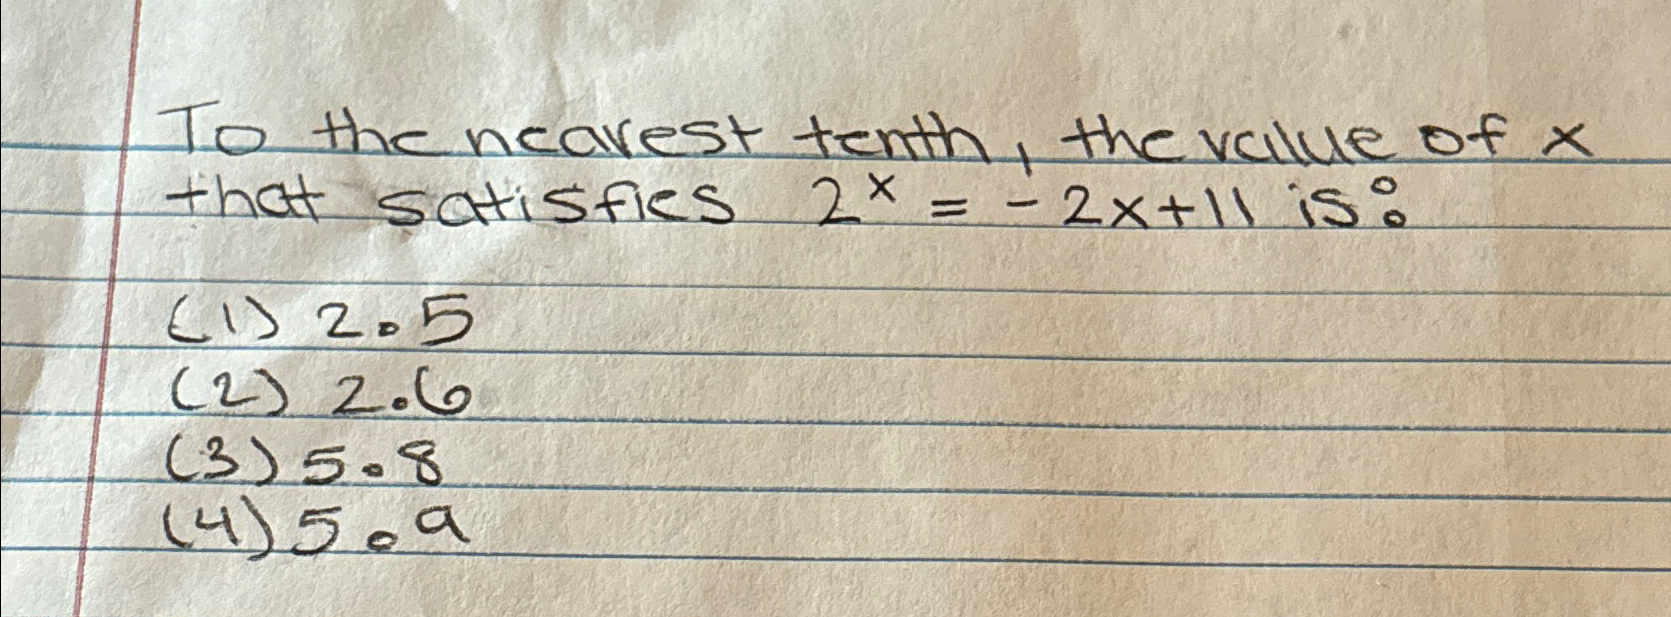 To the nearest tenth, the value of x
that satisfies 2^x = -2x+11 is:
(1) 2.5
(2) 2.6
(3) 5.8
(4) 5.9